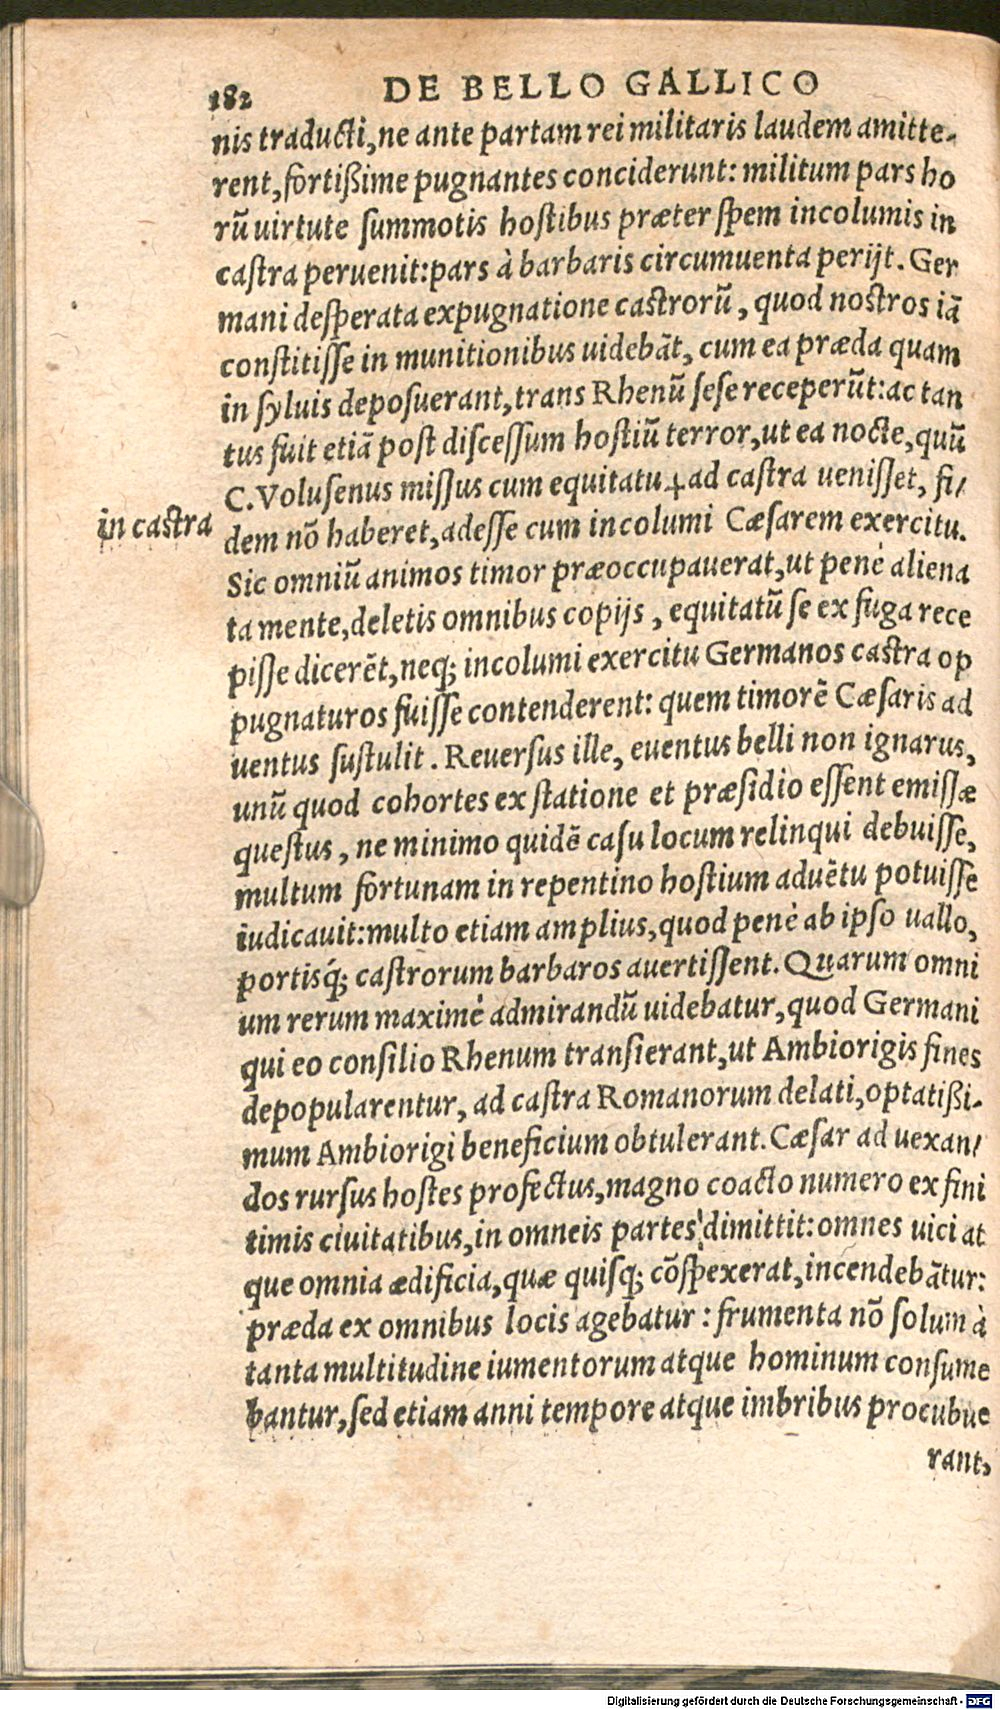 182 DE BELLO GALLICO
nis traducti, ne ante partam rei militaris laudem amitte-
rent, fortißime pugnantes conciderunt: militum pars ho
rũ uirtute summotis hostibus præter spem incolumis in
castra peruenit: pars à barbaris circumuenta perijt. Ger
mani desperata expugnatione castrorũ, quod nostros iã
constitisse in munitionibus uidebãt, cum ea præda quam
in syluis deposuerant, trans Rhenũ sese receperũt: ac tan
tus fuit etiã post discessum hostiũ terror, ut ea nocte, quũ
C. Volusenus missus cum equitatu ⁜ ad castra uenisset, fi/
in castra
dem nõ haberet, adesse cum incolumi Cæsarem exercitu.
Sic omniũ animos timor præoccupauerat, ut penè aliena
ta mente, deletis omnibus copijs, equitatũ se ex fuga rece
pisse dicerẽt, neq; incolumi exercitu Germanos castra op
pugnaturos fuisse contenderent: quem timorẽ Cæsaris ad
uentus sustulit. Reuersus ille, euentus belli non ignarus,
unũ quod cohortes ex statione et præsidio essent emissæ
questus, ne minimo quidẽ casu locum relinqui debuisse,
multum fortunam in repentino hostium aduẽtu potuisse
iudicauit: multo etiam amplius, quod penè ab ipso uallo,
portisq́; castrorum barbaros auertissent. Quarum omni
um rerum maximè admirandũ uidebatur, quod Germani
qui eo consilio Rhenum transierant, ut Ambiorigis fines
depopularentur, ad castra Romanorum delati, optatißi-
mum Ambiorigi beneficium obtulerant. Cæsar ad uexan/
dos rursus hostes profectus, magno coacto numero ex fini
timis ciuitatibus, in omneis partes dimittit: omnes uici at
que omnia ædificia, quæ quisq; cõspexerat, incendebãtur:
præda ex omnibus locis agebatur: frumenta nõ solum à
tanta multitudine iumentorum atque hominum consume
bantur, sed etiam anni tempore atque imbribus procubue
rant,
Digitalisierung gefördert durch die Deutsche Forschungsgemeinschaft - DFG